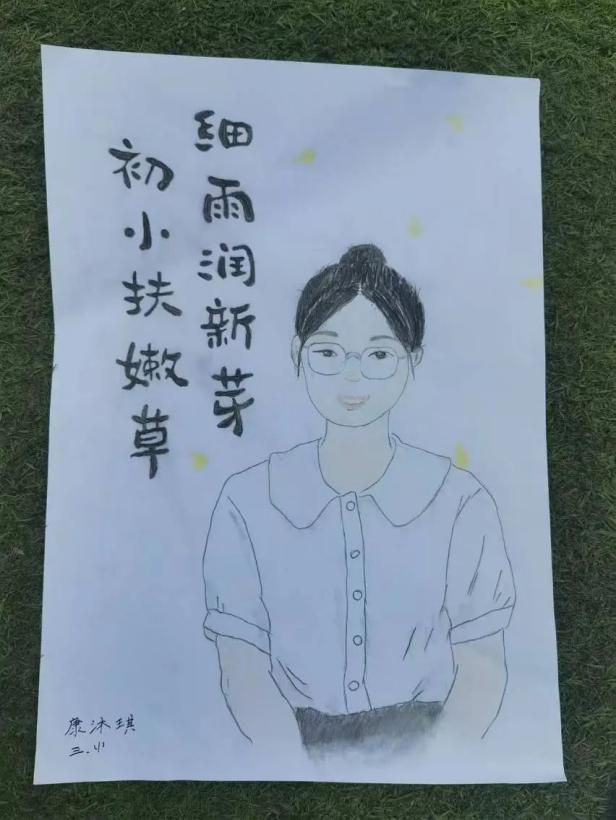 细雨润新芽
初小扶嫩草
康沐琪
三.小